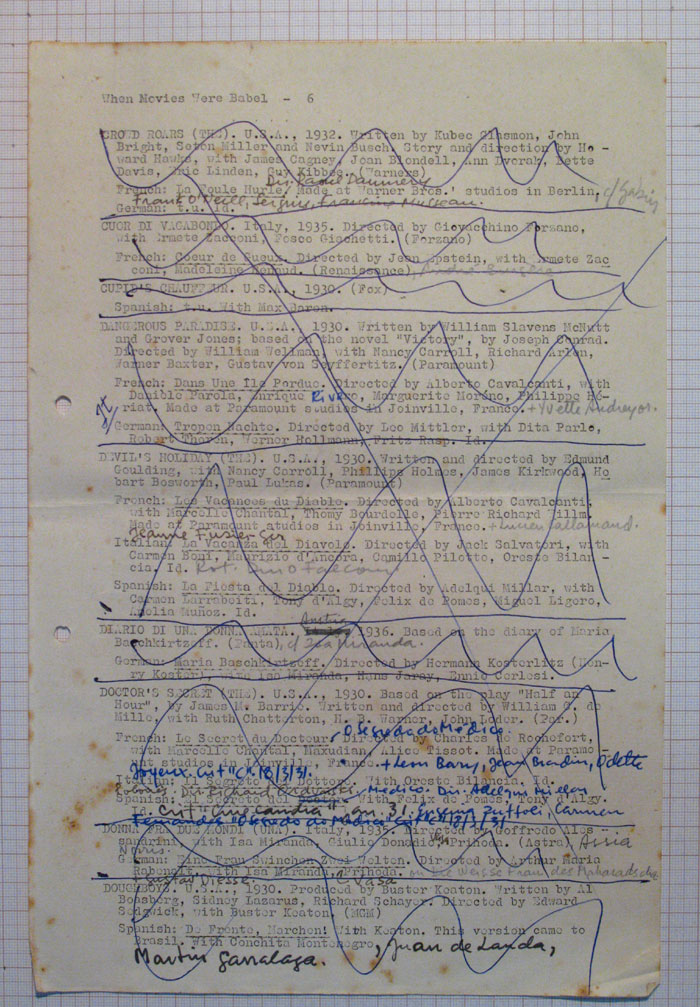 When Movies Were Babel - 6
CROWD ROARS (THE). U.S.A., 1932. Written by Kubec Glasmon, John
Bright, Seton Miller and Nevin Busch. Story and direction by Ho -
ward Hawks, with James Cagney, Joan Blondell, Ann Dvorak, Bette
Davis, Eric Linden, Guy Kibbee. (Warners)
Dir. Raoul Daumery
French: La Foule Hurle. Made at Warner Bros.' studios in Berlin, c/ Gabin
Frank O'Neill, Sergius, Francine Mussean.
German: t.u. id.
CUOR DI VAGABONDO. Italy, 1935. Written by Giovacchino Forzano,
with Ermete Zacconi, Fosco Giachetti. (Forzano)
French: Coeur de Gueux. Directed by Jean Epstein, with Ermete Zac
coni, Madeleine Renaud. (Renaissance),
CUPID'S CHAUFFEUR. U.S.A., 1930. (Fox)
Spanish: t.u. With Max Baron.
DANGEROUS PARADISE. U.S.A. 1930. Written by William Slavens McNutt
and Grover Jones; based on the novel "Victory", by Joseph Conrad.
Directed by William Wellman, with Nancy Carroll, Richard Arlen,
Warner Baxter, Gustav von Seyffertitz. (Paramount)
French: Dans Une Île Perdue. Directed by Alberto Cavalcanti, with
Danièle Parola, Enrique Rivero, Marguerite Moréno, Philippe Hé-
riat. Made at Paramount studios in Joinville, France. + Yvette Andreyor.
It
German: Tropen Nächte. Directed by Leo Mittler, with Dita Parlo,
Robert Thoren, Werner Hollmann, Fritz Rasp. Id.
DEVIL'S HOLIDAY (THE). U.S.A., 1930. Written and directed by Edmund
Goulding, with Nancy Carroll, Phillips Holmes, James Kirkwood, Ho
bart Bosworth, Paul Lukas. (Paramount)
French: Les Vacances du Diable. Directed by Alberto Cavalcanti,
with Marcelle Chantal, Thomy Bourdelle, Pierre Richard Willm.
Made at Paramount studios in Joinville, France. + Lucien Callamand.
Jeanne Fusier Gir
Italian: La Vacanza del Diavolo. Directed by Jack Salvatori, with
Carmen Boni, Maurizio d'Ancora, Camillo Pilotto, Oreste Bilan -
cia. Id. Rob. Dino Falconi
Spanish: La Fiesta del Diablo. Directed by Adelqui Millar, with
Carmen Larrabeiti, Tony d'Algy, Felix de Pomes, Miguel Ligero,
Amelia Muñoz. Id.
Austria
DIARIO DI UNA DONNA AMATA. 1936. Based on the diary of Maria
Baschkirtzeff. (Panta), c/ Isa Miranda.
German: Maria Baschkirtzeff. Directed by Hermann Kosterlitz (Hen-
ry Kosterlitz), with Isa Miranda, Hans Jaray, Ennio Cerlesi.
DOCTOR'S SECRET (THE). U.S.A., 1930. Based on the play "Half an
Hour", by James M. Barrie. Written and directed by William C. de
Mille, with Ruth Chatterton, H. B. Warner, John Loder. (Par.)
O Segredo do Medico.
French: Le Secret du Docteur. Directed by Charles de Rochefort,
with Marcelle Chantal, Maxudian, Alice Tissot. Made at Paramo -
unt studios in Joinville, France. + Leon Bary, Jean Bradin, Odette
Joyeux. Crit "CA 18/3/31.
Italian: Il Segreto del Dottore. With Oreste Bilancia. Id.
Dir. Richard
Medico. Dir. Adelqui Millar
Spanish: El Secreto del With Felix de Pomes, Tony d'Algy.
Id. Crit "Cinelandia" Jan. 31.
Fernandes "O Segredo do Medico"
DONNA FRA DUE MONDI (UNA). Italy, 1935. Directed by Goffredo Ales
sandrini, with Isa Miranda, Giulio Donadio, Prihoda. (Astra) Assia
Noris.
German: Eine Frau Zwischen Zwei Welten. Directed by Arthur Maria
Rabenalt, with Isa Miranda, Prihoda. Die Weisse Frau des Maharadscha
Gustav Diessl, Vasa
DOUGHBOYS. U.S.A., 1930. Produced by Buster Keaton. Written by Al
Boasberg, Sidney Lazarus, Richard Schayer. Directed by Edward
Sedgwick, with Buster Keaton. (MGM)
Spanish: De Frente, Marchen! With Keaton. This version came to
Brasil. With Conchita Montenegro, Juan de Landa,
Martin Garralaga.